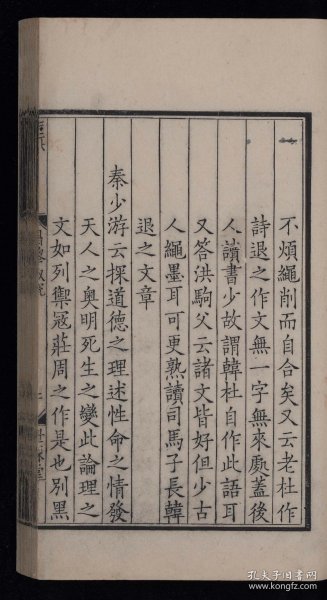 不煩繩削而自合矣又云老杜作
詩退之作文無一字無來處蓋後
人讀書少故謂韓杜自作此語耳
又答洪駒父云諸文皆好但少古
人繩墨耳可更熟讀司馬子長韓
退之文章
秦少游云探道德之理述性命之情發
天人之奧明死生之變此論理之
文如列禦冦莊周之作是也別黑
孔夫子旧书网